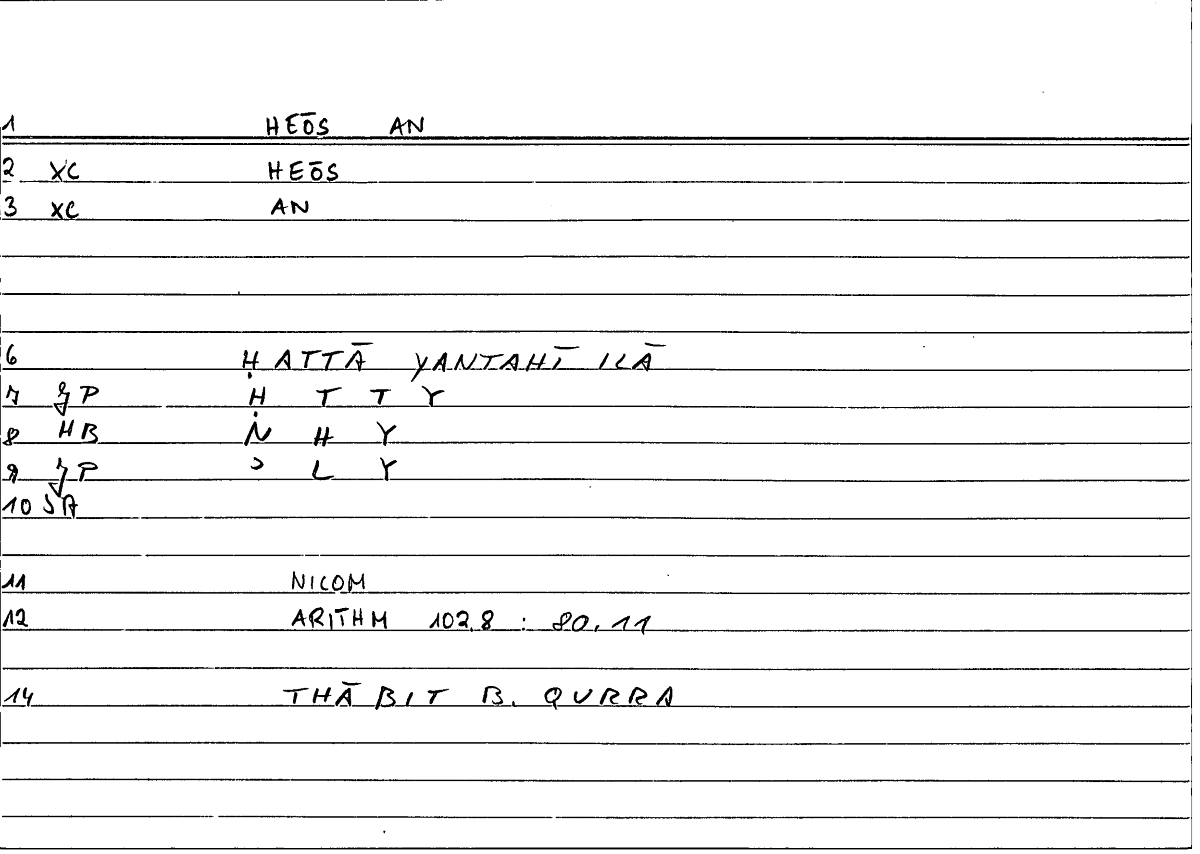 1 HEŌS AN
2 XC HEŌS
3 XC AN
6 ḤATTĀ YANTAHĪ ILĀ
7 P Ḥ T T Y
8 HB N H Y
9 P ʾ L Y
10 SA
11 NICOM
12 ARITHM 102.8 : 80.11
14 THĀBIT B. QURRA